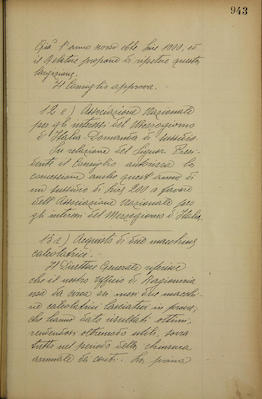 943
Già l'anno scorso ebbe Lire 1000, ed
il Relatore propone di ripetere questa
elargizione.
Il Consiglio approva.
12 c) Associazione Nazionale
per gli interessi del Mezzogiorno
d'Italia. Domanda di sussidio
Su relazione del Signor Presi-
dente il Consiglio autorizza la
concessione anche quest'anno di
un sussidio di Lire 200 a favore
dell'Associazione Nazionale per
gli interessi del Mezzogiorno d'Italia.
13 a) Acquisto di due macchine
calcolatrici.
Il Direttore Generale riferisce
che il nostro Ufficio di Ragioneria
ha da circa un mese due macchi-
ne calcolatrici in prova,
che hanno dato risultati ottimi,
rendendosi oltremodo utili, sopra
tutto nel periodo della chiusura
annuale dei conti. La prima